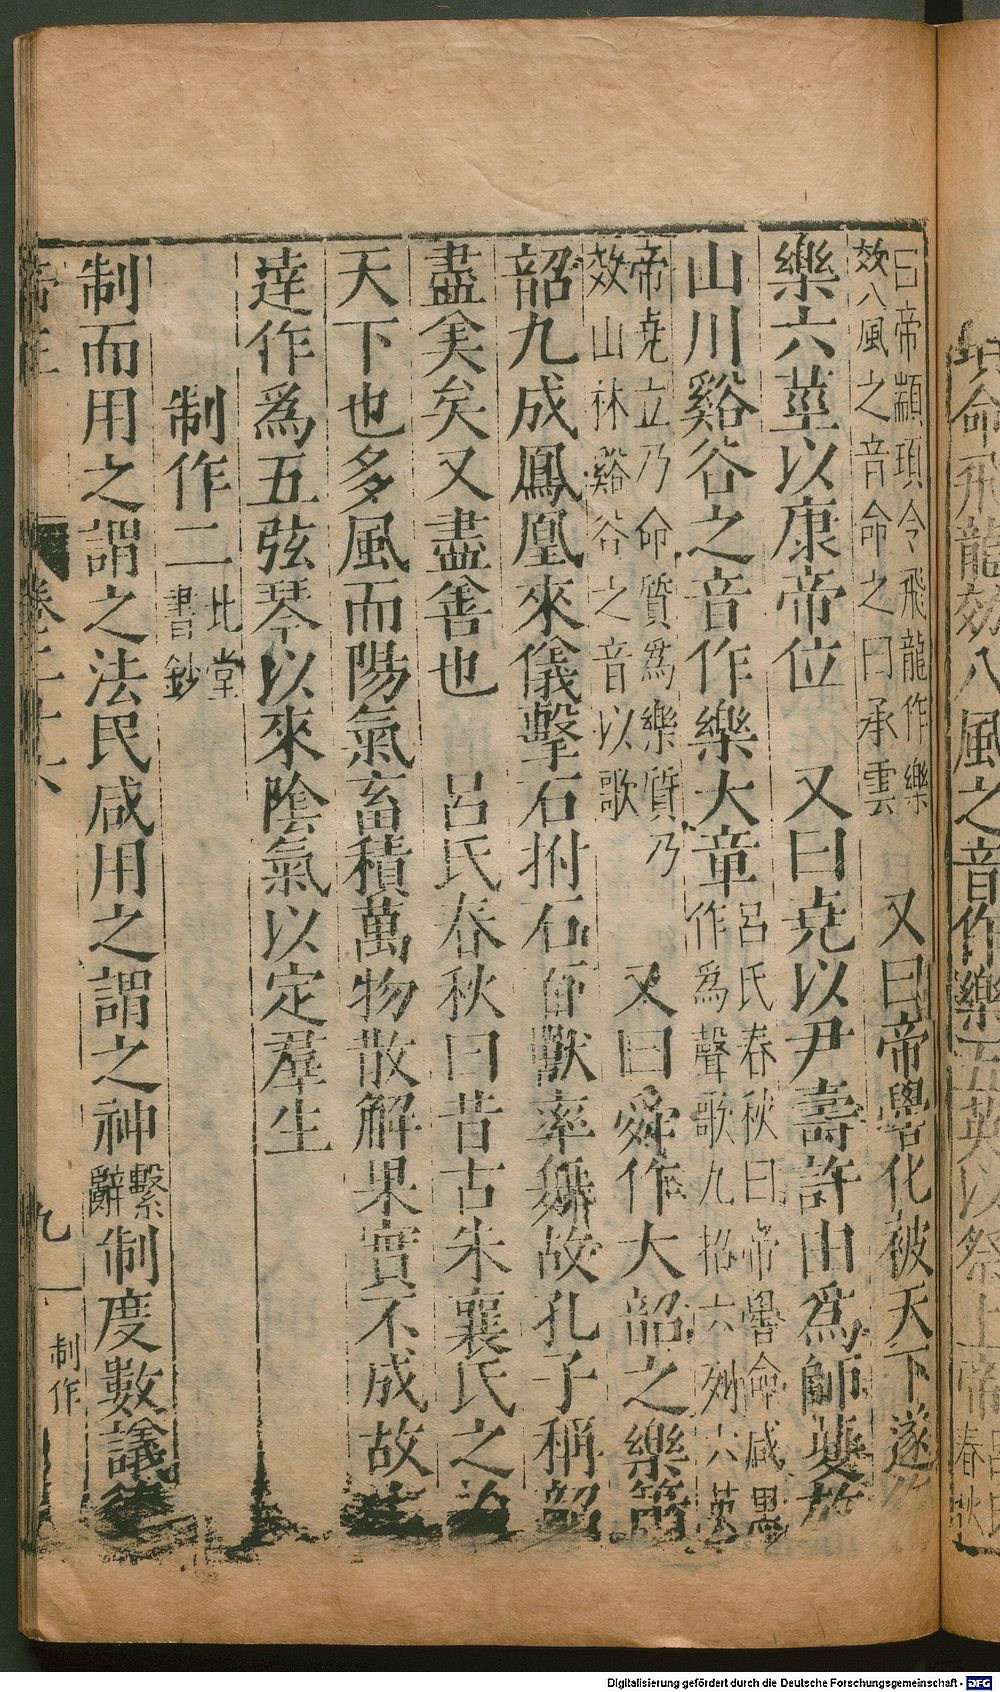 曰帝顓頊令飛龍作樂
效八風之音命之曰承雲
又曰帝嚳化被天下遂
樂六莖以康帝位　又曰堯以尹壽許由爲師夔放
山川谿谷之音作樂大章
呂氏春秋曰帝嚳命咸黑
作爲聲歌九招六列六英
帝堯立乃命質爲樂質乃
效山林谿谷之音以歌
又曰舜作大韶之樂簫
韶九成鳳凰來儀擊石拊石百獸率舞故孔子稱韶
盡美矣又盡善也　呂氏春秋曰昔古朱襄氏之治
天下也多風而陽氣畜積萬物散解果實不成故士
達作爲五弦琴以來陰氣以定羣生
制作二
北堂
書鈔
制而用之謂之法民咸用之謂之神
繫
辭
制度數議
卷二十六
九
制作
命飛龍效八風之音作樂五英以祭上帝
春秋
Digitalisierung gefördert durch die Deutsche Forschungsgemeinschaft - DFG